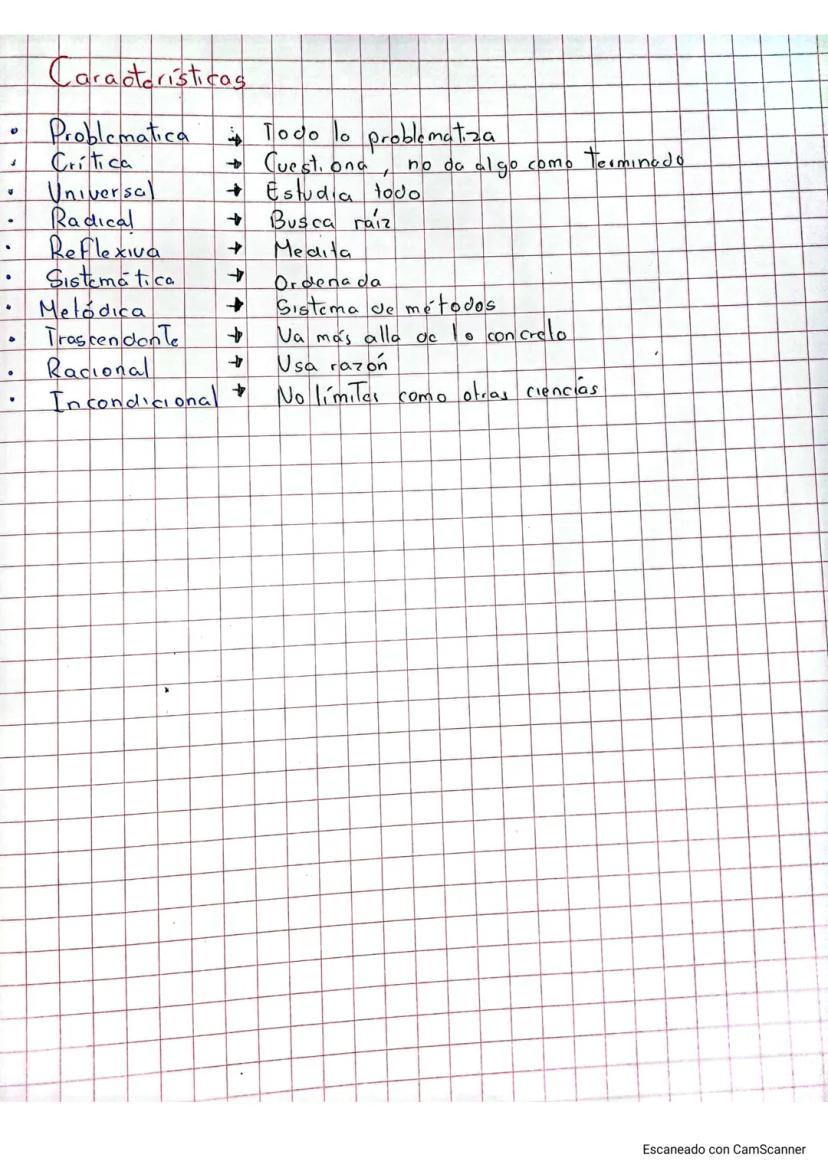 Características
• Problematica → Todo lo problematiza
• Crítica → Cuestiona, no da algo como terminado
• Universal → Estudia todo
• Radical → Busca raíz
• Reflexiva → Medita
• Sistemática → Ordenada
• Metódica → Sistema de métodos
• Trascendente → Va más alla de lo concreto
• Racional → Usa razón
• Incondicional → No límites como otras ciencias
Escaneado con CamScanner